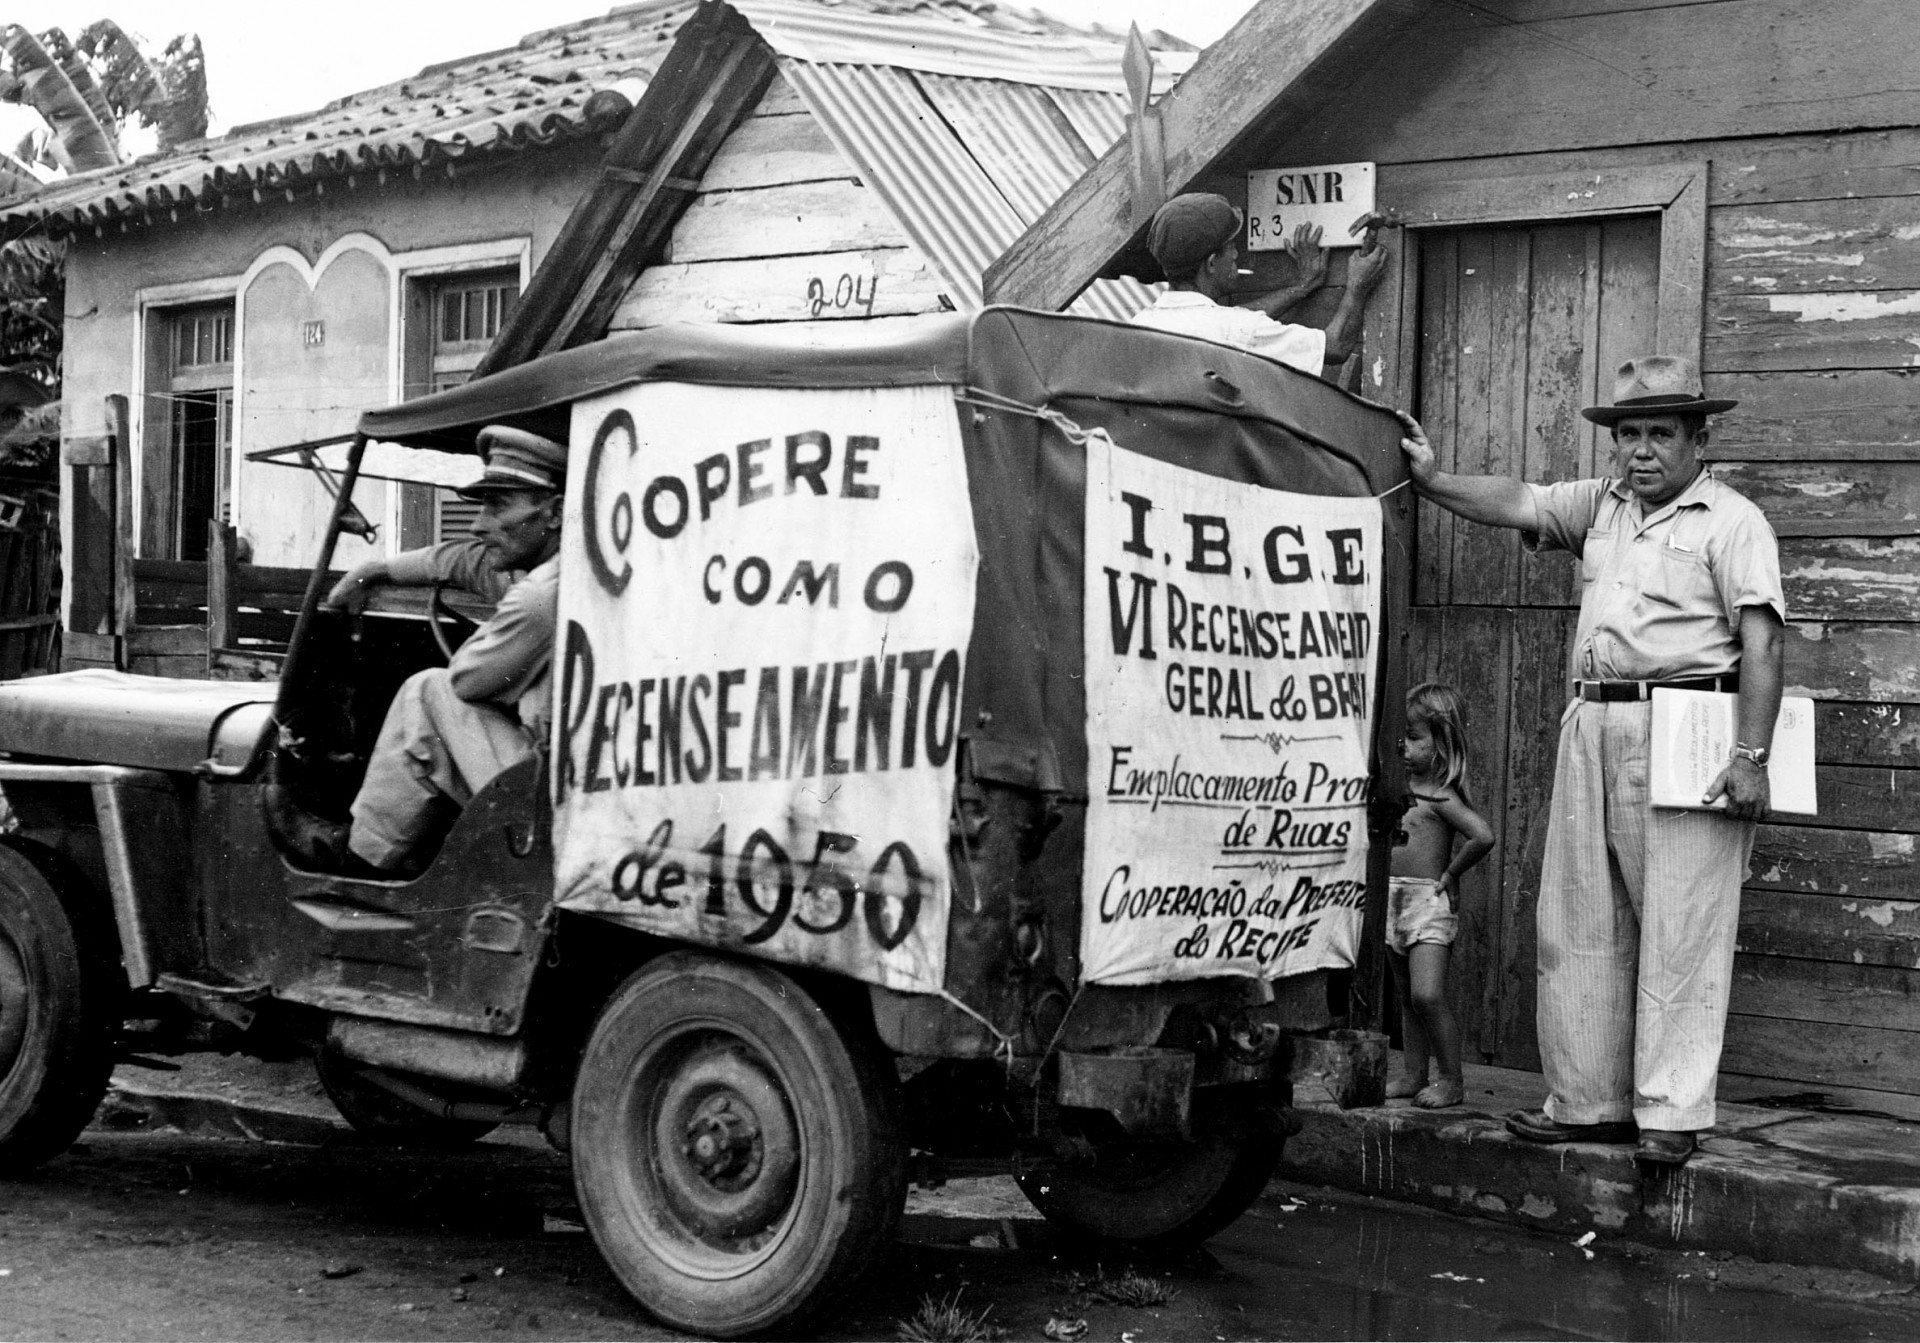 124
204
SNR
R, 3
COOPERE
COMO
RECENSEAMENTO
de 1950
I.B.G.E.
VI RECENSEAMENTO
GERAL do BRA
Emplacamento Prov
de Ruas
COOPERAÇÃO da PREFEITU
do RECIFE